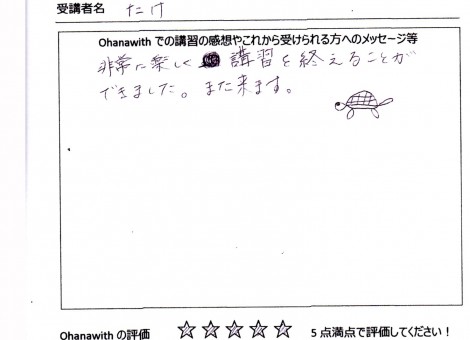 受講者名 たけ
Ohanawith での講習の感想やこれから受けられる方へのメッセージ等
非常に楽しく 講習を終えることが
できました。また来ます。
Ohanawith の評価 ☆☆☆☆☆ 5点満点で評価してください!